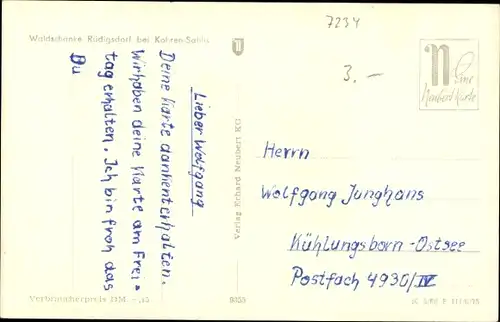 Waldschänke Rüdigsdorf bei Kohren-Sahlis
7234
3.-
N
eine
Neubert-Karte
Lieber Wolfgang
Deine Karte dankent erhalten.
Wir haben deine Karte am Frei-
tag erhalten. Ich bin froh das
Du
Verlag Erhard Neubert KG
Herrn
Wolfgang Junghans
Kühlungsborn-Ostsee
Postfach 4930/IV
Verbraucherpreis DM